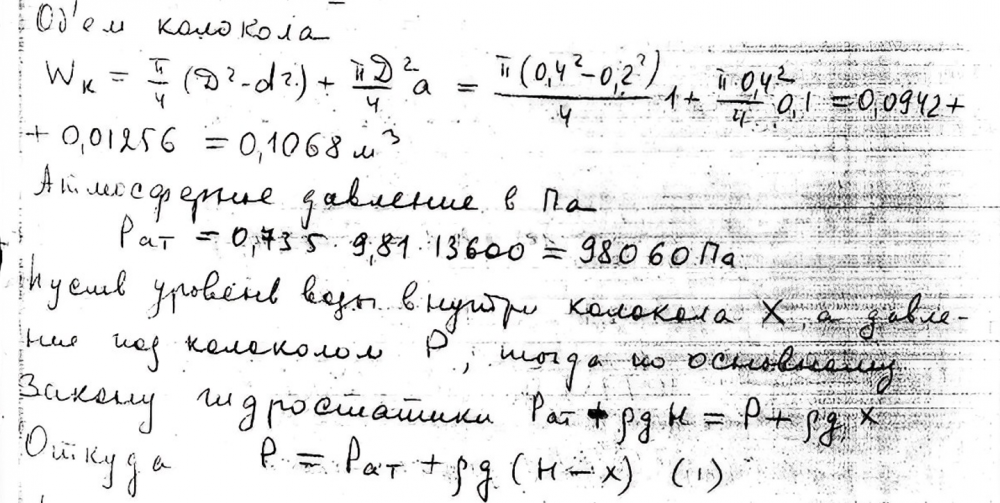 Об'ем колокола
Wк = π/4 (D²-d²) + πD²/4 a = π(0,4²-0,2²)/4 1 + π 0,4²/4 0,1 = 0,0942 +
+ 0,01256 = 0,1068 м³
Атмосферное давление в Па
Рат = 0,735 · 9,81 · 13600 = 98060 Па
Пусть уровень воды внутри колокола X, а давле-
ние под колоколом P, тогда по основному
Закону гидростатики Рат + ρg H = P + ρg X
Откуда P = Рат + ρg (H - x) (1)